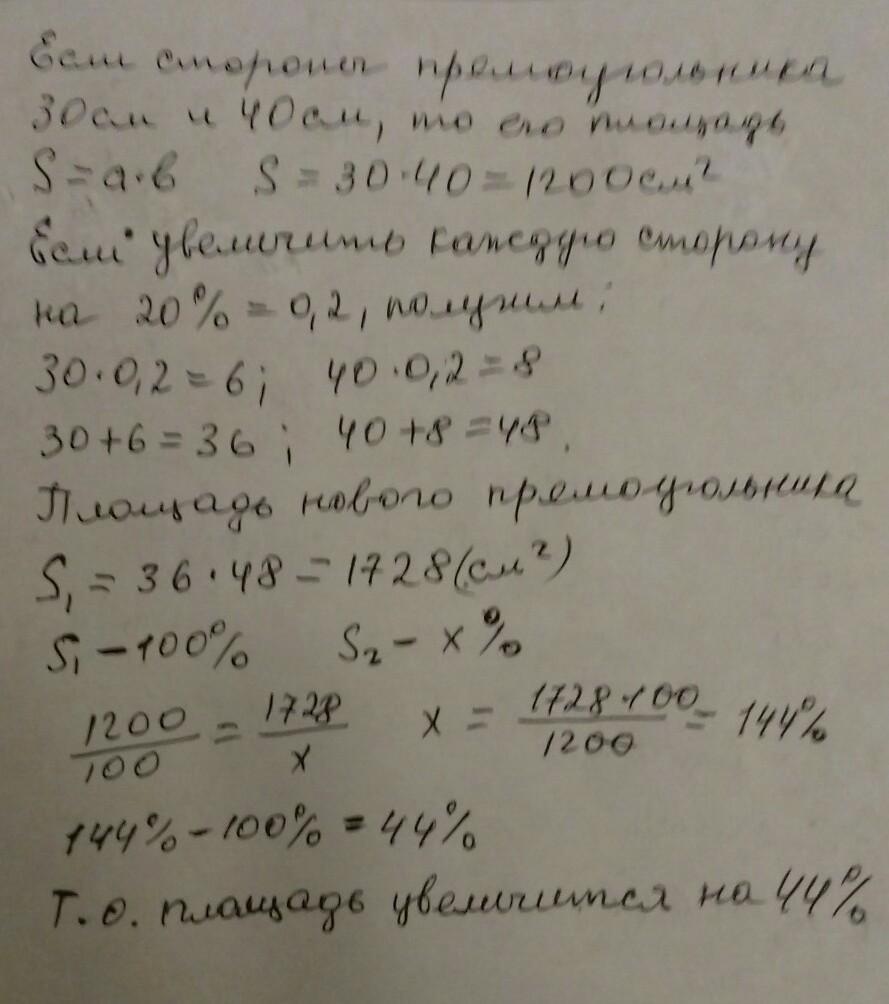 Если стороны прямоугольника
30см и 40см, то его площадь
S = a·b S = 30·40 = 1200см²
Если увеличить каждую сторону
на 20% = 0,2, получим:
30·0,2 = 6; 40·0,2 = 8
30+6 = 36; 40+8 = 48.
Площадь нового прямоугольника
S₁ = 36·48 = 1728(см²)
S₁ – 100% S₂ – x%
1200/100 = 1728/x x = 1728·100/1200 = 144%
144% – 100% = 44%
Т.о. площадь увеличится на 44%